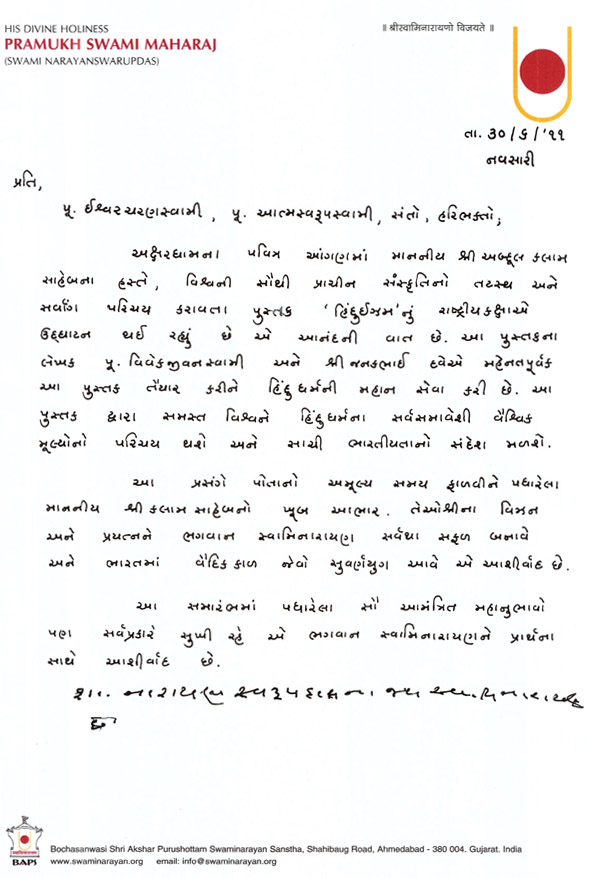 HIS DIVINE HOLINESS
PRAMUKH SWAMI MAHARAJ
(SWAMI NARAYANSWARUPDAS)
॥ श्रीस्वामिनारायणो विजयते ॥
તા. ૩૦/૬/'૧૧
નવસારી
પ્રતિ,
પૂ. ઈશ્વરચરણસ્વામી, પૂ. આત્મસ્વરૂપસ્વામી, સંતો, હરિભક્તો,
અક્ષરધામના પવિત્ર આંગણમાં માનનીય શ્રી અબ્દુલ કલામ
સાહેબના હસ્તે, વિશ્વની સૌથી પ્રાચીન સંસ્કૃતિનો તટસ્થ અને
સર્વાંગ પરિચય કરાવતા પુસ્તક 'હિંદુઈઝમ'નું રાષ્ટ્રીયકક્ષાએ
ઉદ્ઘાટન થઈ રહ્યું છે એ આનંદની વાત છે. આ પુસ્તકના
લેખક પૂ. વિવેકજીવનસ્વામી અને શ્રી જનકભાઈ દવેએ મહેનતપૂર્વક
આ પુસ્તક તૈયાર કરીને હિંદુ ધર્મની મહાન સેવા કરી છે. આ
પુસ્તક દ્વારા સમસ્ત વિશ્વને હિંદુ ધર્મના સર્વસમાવેશી વૈશ્વિક
મૂલ્યોનો પરિચય થશે અને સાચી ભારતીયતાનો સંદેશ મળશે.
આ પ્રસંગે પોતાનો અમૂલ્ય સમય ફાળવીને પધારેલા
માનનીય શ્રી કલામ સાહેબનો ખૂબ આભાર. તેઓશ્રીના વિઝન
અને પ્રયત્નને ભગવાન સ્વામિનારાયણ સર્વથા સફળ બનાવે
અને ભારતમાં વૈદિક કાળ જેવો સુવર્ણયુગ આવે એ આશીર્વાદ છે.
આ સમારંભમાં પધારેલા સૌ આમંત્રિત મહાનુભાવો
પણ સર્વપ્રકારે સુખી રહે એ ભગવાન સ્વામિનારાયણને પ્રાર્થના
સાથે આશીર્વાદ છે.
શા. નારાયણસ્વરૂપદાસના જય સ્વામિનારાયણ
છે
BAPS
Bochasanwasi Shri Akshar Purushottam Swaminarayan Sanstha, Shahibaug Road, Ahmedabad - 380 004. Gujarat. India
www.swaminarayan.org email: info@swaminarayan.org